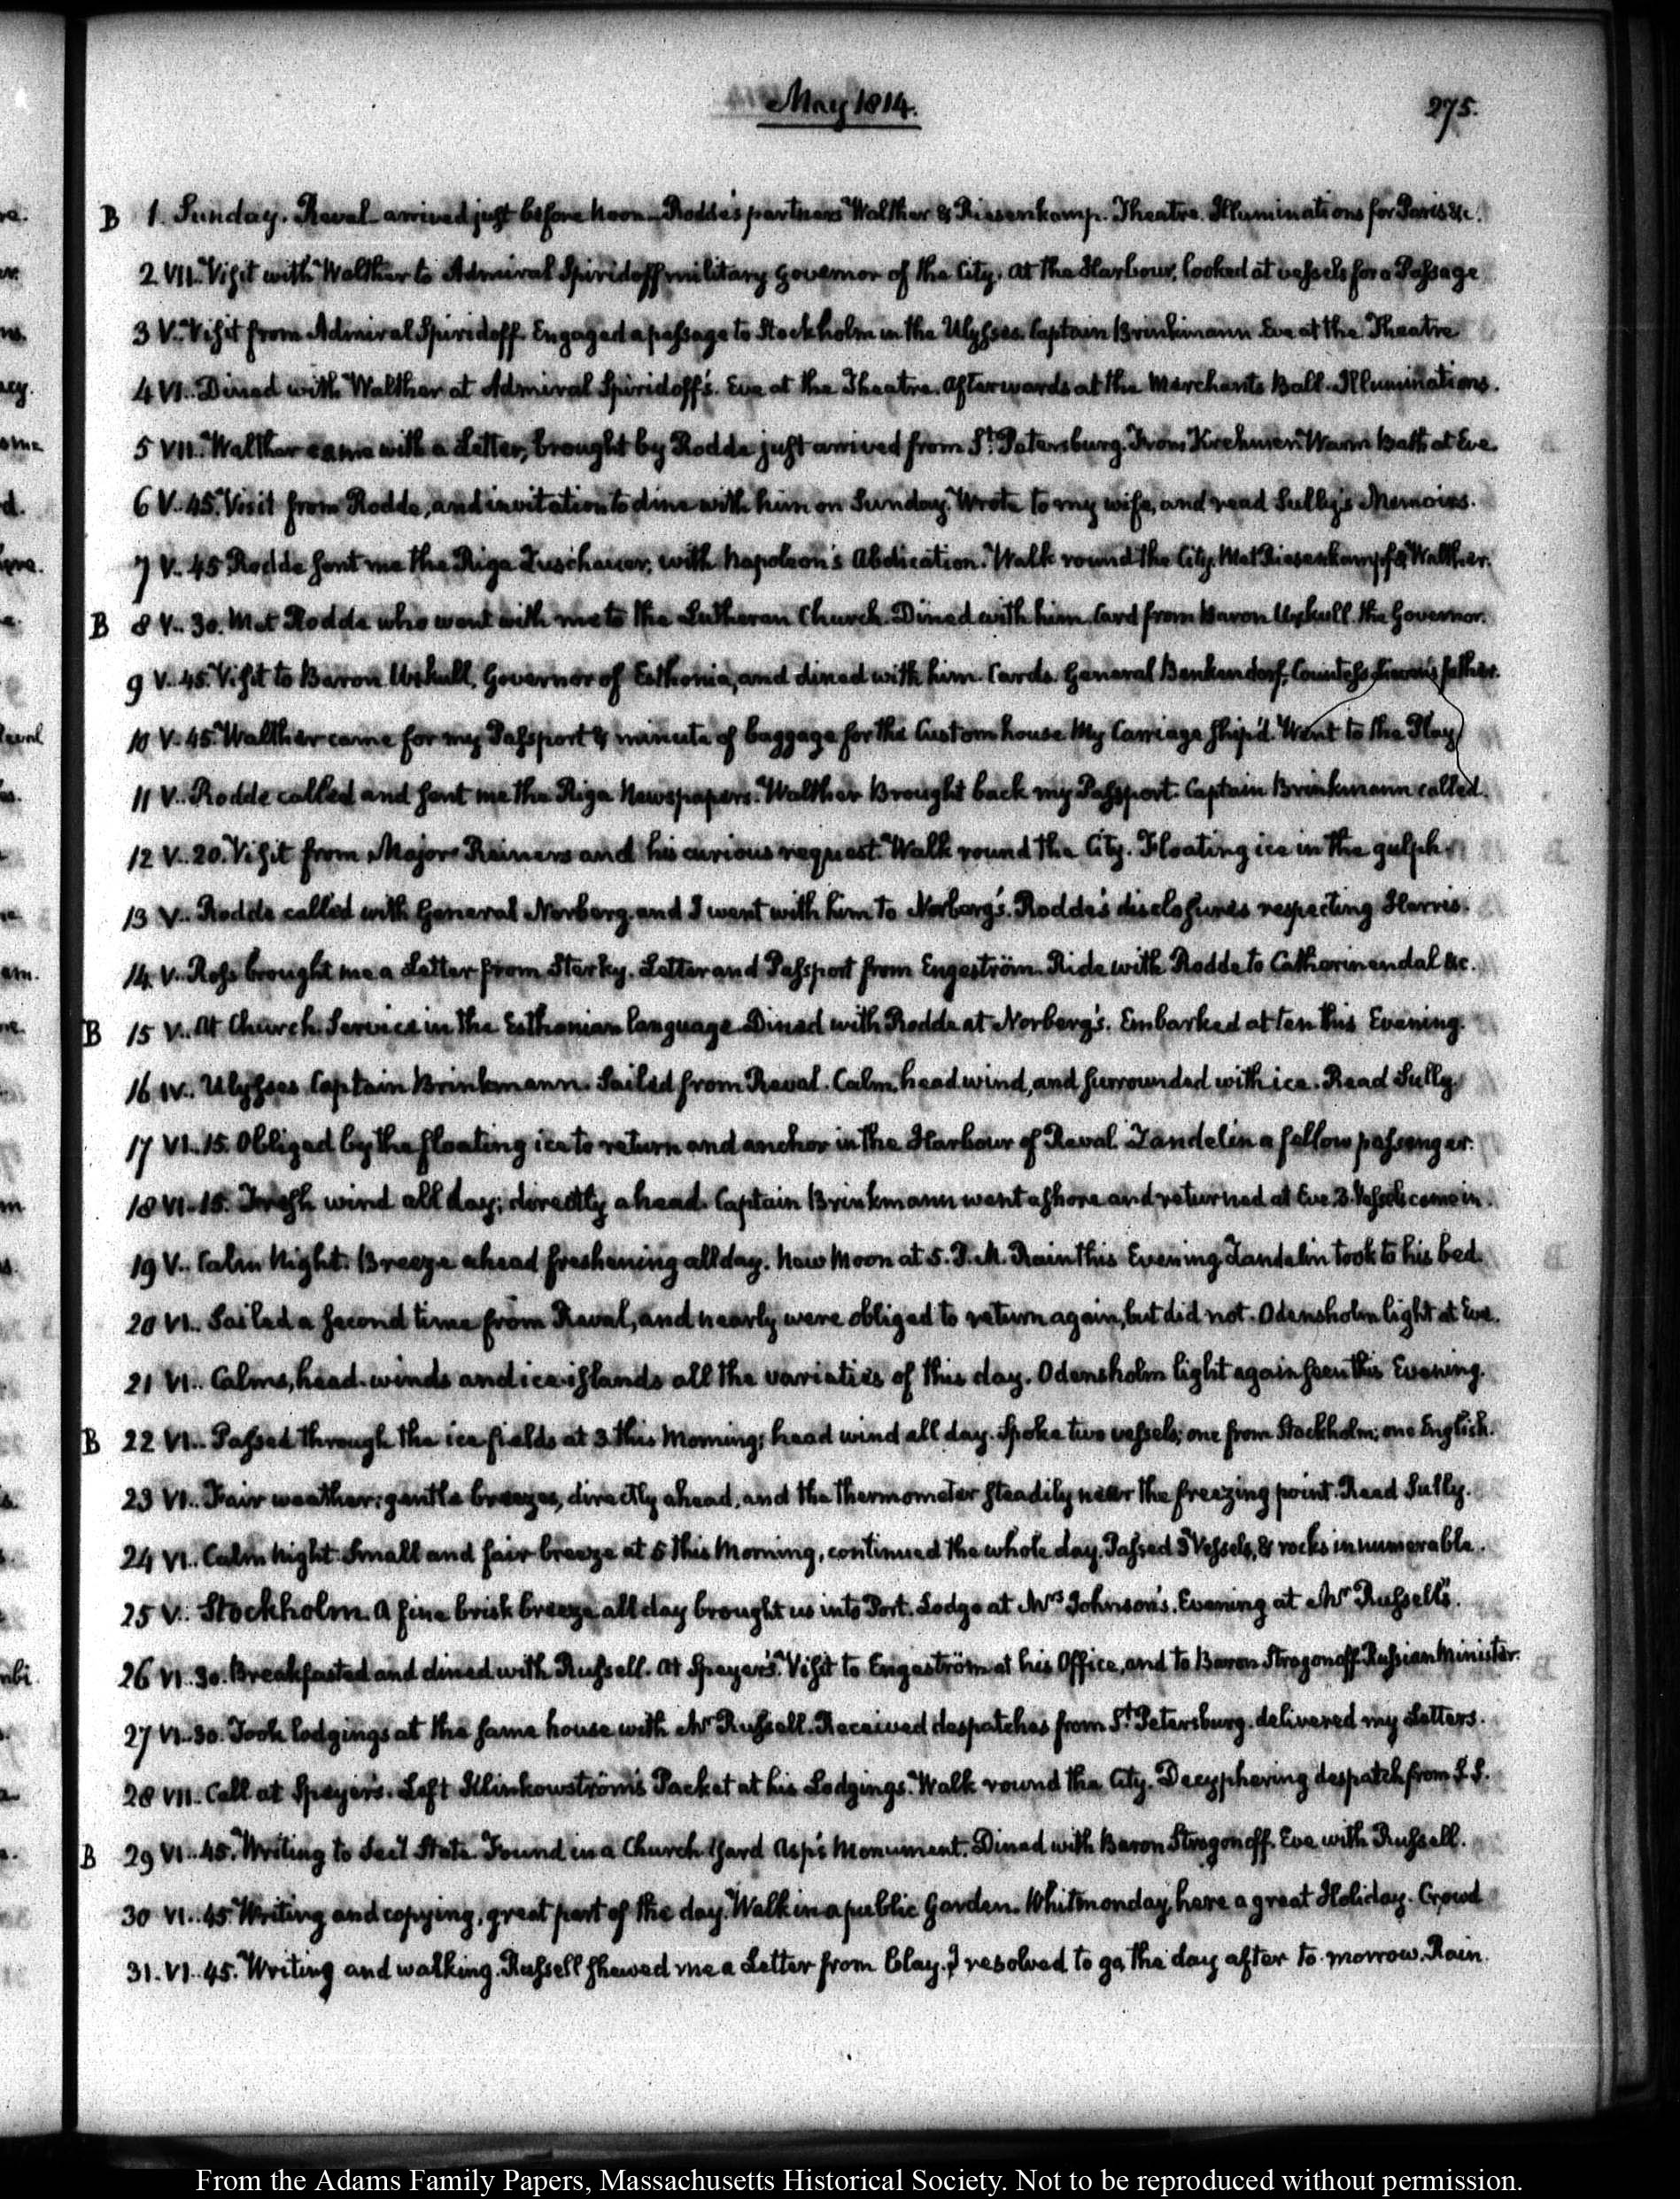 May 1814.
275.
B 1. Sunday. Reval arrived just before noon. Rodde's partners Walther & Riesenkamp. Theatre. Illuminations for Paris &c.
2 VII. Visit with Walther to Admiral Spiridoff military governor of the City. At the Harbour, looked at vessels for a Passage
3 V. Visit from Admiral Spiridoff. Engaged a passage to Stockholm in the Ulysses. Captain Brinkmann. Eve at the Theatre
4 VI. Dined with Walther at Admiral Spiridoff's. Eve at the Theatre. Afterwards at the Merchants Ball. Illuminations.
5 VII. Walther came with a Letter, brought by Rodde just arrived from St. Petersburg. From Krehmer. Warm Bath at Eve.
6 V. 45. Visit from Rodde, and invitation to dine with him on Sunday. Wrote to my wife, and read Sully's Memoirs.
7 V. 45 Rodde sent me the Riga Zuschauer, with Napoleon's Abdication. Walk round the City. Met Riesenkampf & Walther.
B 8 V. 30. Met Rodde who went with me to the Lutheran Church. Dined with him. Card from Baron Uxkull. the Governor.
9 V. 45. Visit to Baron Uxkull, Governor of Esthonia, and dined with him. Cards. General Benkendorf, Countess Lieven's father.
10 V. 45. Walther came for my Passport & minute of baggage for the Custom house My Carriage ship'd. Went to the Play
11 V. Rodde called and sent me the Riga Newspapers. Walther Brought back my Passport. Captain Brinkmann called.
12 V. 20. Visit from Major Reiners and his curious request. Walk round the City. Floating ice in the gulph.
13 V. Rodde called with General Norberg. and I went with him to Norberg's. Rodde's disclosures respecting Harris.
14 V. Ross brought me a Letter from Sterky. Letter and Passport from Engeström. Ride with Rodde to Catharinendal &c.
B 15 V. At Church. Service in the Esthonian language. Dined with Rodde at Norberg's. Embarked at ten this Evening.
16 IV. Ulysses Captain Brinkmann. Sailed from Reval. Calm, head wind, and surrounded with ice. Read Sully.
17 VI. 15. Obliged by the floating ice to return and anchor in the Harbour of Reval. Zandelin a fellow passenger.
18 VI. 15. Fresh wind all day; directly ahead. Captain Brinkmann went ashore and returned at Eve. 3. Vessels come in.
19 V. Calm Night. Breeze ahead freshening all day. New Moon at 5. P.M. Rain this Evening. Zandelin took to his bed.
20 VI. Sailed a second time from Reval, and nearly were obliged to return again, but did not. Odensholm light at Eve.
21 VI. Calms, head-winds and ice-islands all the varieties of this day. Odensholm light again seen this Evening.
B 22 VI. Passed through the ice fields at 3 this Morning; head wind all day. Spoke two vessels; one from Stockholm; one English.
23 VI. Fair weather: gentle breezes, directly ahead, and the thermometer steadily near the freezing point. Read Sully.
24 VI. Calm Night. Small and fair breeze at 5 this Morning, continued the whole day. Passed 3 Vessels, & rocks innumerable.
25 V. Stockholm. A fine brisk breeze all day brought us into Port. Lodge at Mrs Johnson's. Evening at Mr Russell's.
26 VI. 30. Breakfasted and dined with Russell. At Speyer's. Visit to Engeström at his Office, and to Baron Strogonoff Russian Minister.
27 VI. 30. Took lodgings at the same house with Mr Russell. Received despatches from St. Petersburg. delivered my Letters.
28 VII. Call at Speyer's. Left Klinkowström's Packet at his Lodgings. Walk round the City. Decyphering despatch from S.S.
B 29 VI. 45. Writing to Sec'y State. Found in a Church Yard Asp's Monument. Dined with Baron Strogonoff. Eve with Russell.
30 VI. 45. Writing and copying, great part of the day. Walk in a public Garden. Whitmonday, here a great Holiday. Crowd
31. VI. 45. Writing and walking. Russell shewed me a Letter from Clay. I resolved to go the day after to-morrow. Rain.
From the Adams Family Papers, Massachusetts Historical Society. Not to be reproduced without permission.